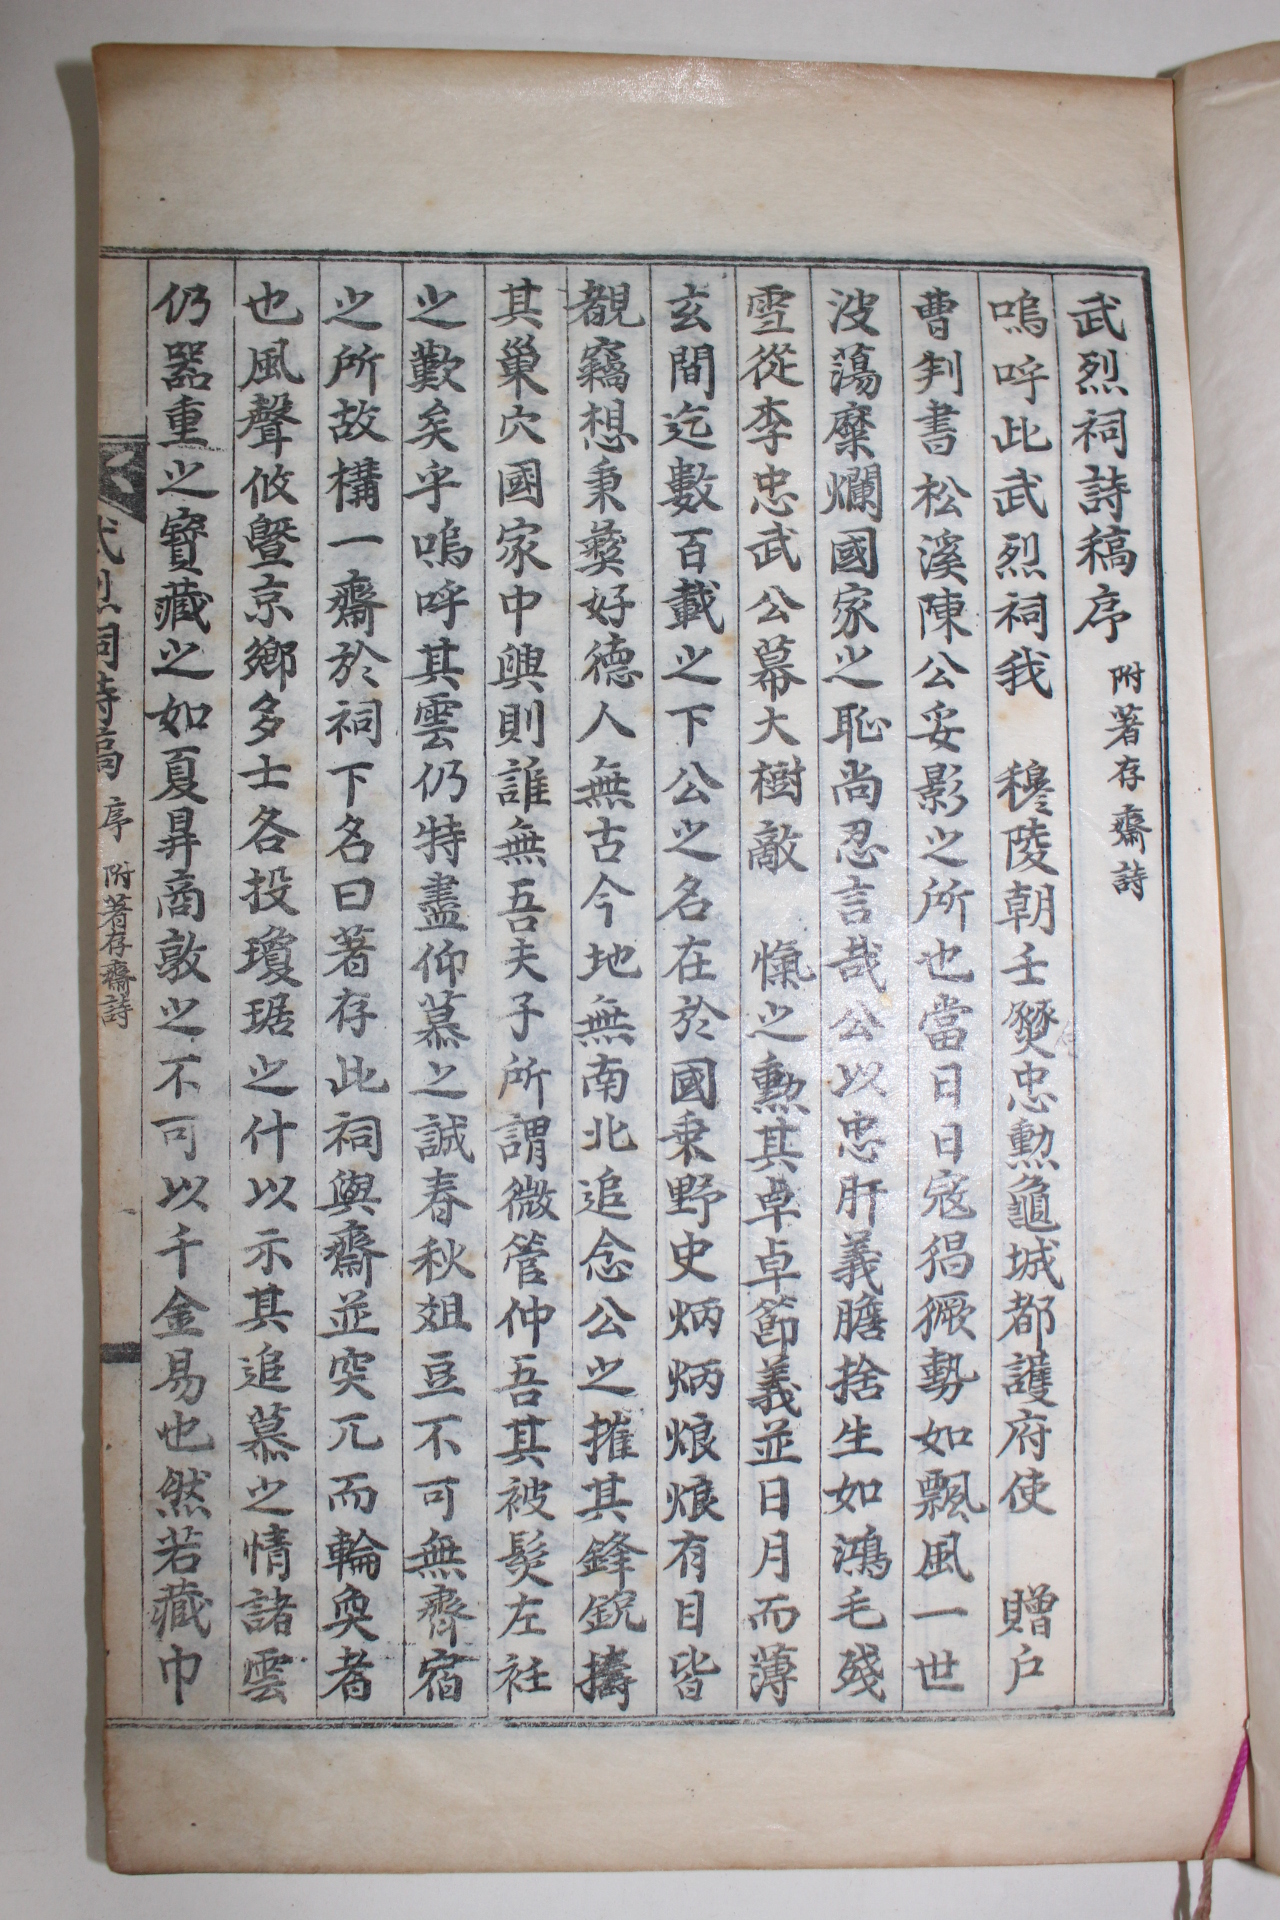 武烈祠詩稿序 附著存齋詩
嗚呼此武烈祠我 穆陵朝壬燹忠勳龜城都護府使 贈戶
曹判書松溪陳公妥影之所也當日日寇猖獗勢如飄風一世
波蕩糜爛國家之恥尚忍言哉公以忠肝義膽捨生如鴻毛殘
雪從李忠武公幕大樹敵 愾之勳其卓卓節義並日月而薄
玄間迄數百載之下公之名在於國乘野史炳炳烺烺有目皆
覩竊想秉彜好德人無古今地無南北追念公之摧其鋒銳擣
其巢穴國家中興則誰無吾夫子所謂微管仲吾其被髮左衽
之歎矣乎嗚呼其雲仍特盡仰慕之誠春秋俎豆不可無齋宿
之所故構一齋於祠下名曰著存此祠與齋並突兀而輪奐者
也風聲攸曁京鄉多士各投瓊琚之什以示其追慕之情諸雲
仍器重之寶藏之如夏鼎商敦之不可以千金易也然若藏巾
武烈祠詩稿 序 附著存齋詩